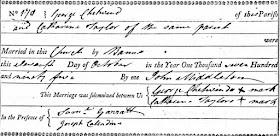 No 170 } George Chetwind of this Parish
and Catharine Taylor of the same parish
were
Married in this Church by Banns
this eleventh Day of October in the Year One Thousand seven Hundred
and ninety five By me John Middleton
This Marriage was solemnized between Us { George Chetwind x mark
Catharine Taylor x mark
In the Presence of { Saml Garratt
Joseph Calendine